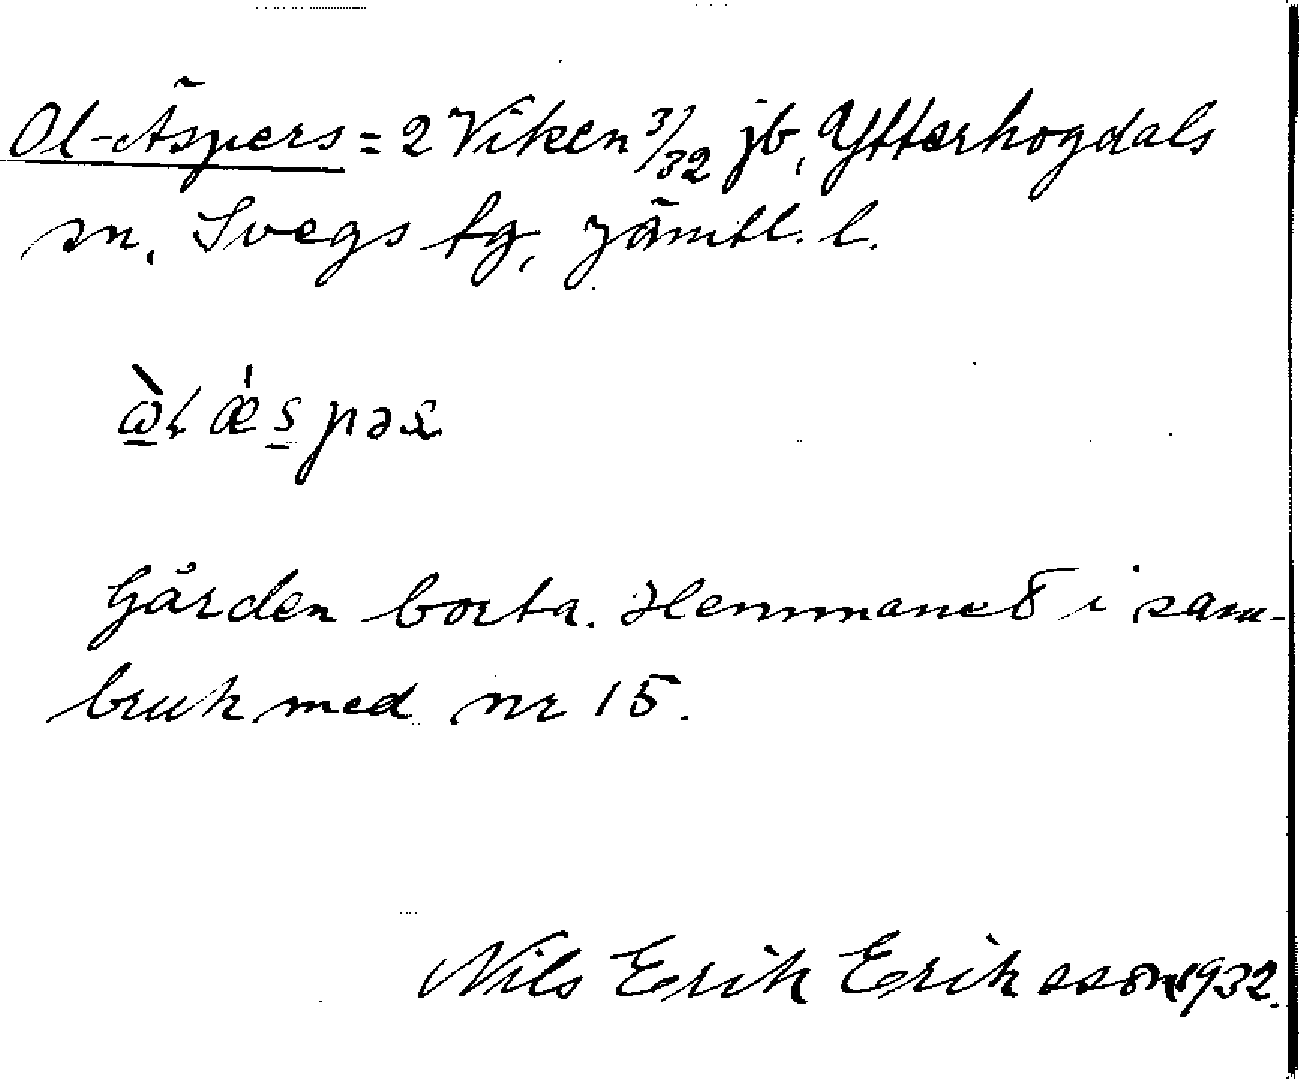 Ol-Äspers = 2 Viken 3/32 jb, Ytterhogdals
sn. Svegs tg, Jämtl. l.
Gården borta. Hemmanet i sam-
bruk med nr 15.
Nils Erik Eriksson 1932.